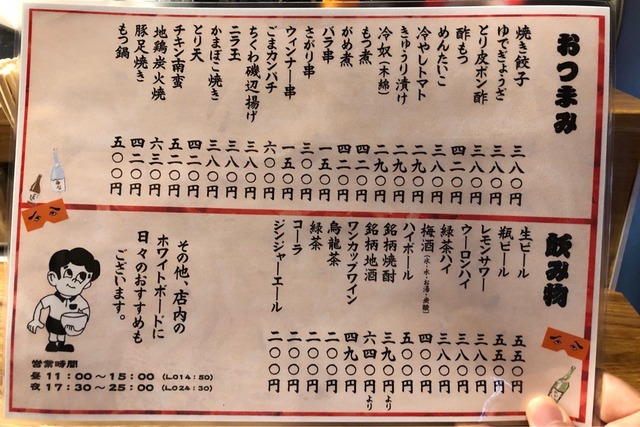 おつまみ
焼き餃子 三八〇円
ゆでぎょうざ 三八〇円
とり皮ポン酢 三八〇円
酢もつ 四二〇円
めんたいこ 三八〇円
冷やしトマト 二九〇円
きゅうり漬け 二九〇円
冷奴(木綿) 二九〇円
もつ煮 四二〇円
がめ煮 四二〇円
バラ串 一五〇円
さがり串 三〇〇円
ウィンナー串 一五〇円
ごまカンパチ 六〇〇円
ちくわ磯辺揚げ 三八〇円
ニラ玉 三八〇円
かまぼこ焼き 三八〇円
とり天 四二〇円
チキン南蛮 五二〇円
地鶏炭火焼 六三〇円
豚足焼き 四二〇円
もつ鍋 五〇〇円
飲み物
生ビール 五五〇円
瓶ビール 五五〇円
レモンサワー 三八〇円
ウーロンハイ 三八〇円
緑茶ハイ 三八〇円
梅酒 五〇〇円
ハイボール 四〇〇円
銘柄焼酎 三九〇円より
銘柄地酒 六四〇円より
ワンカップワイン 四九〇円
烏龍茶 二〇〇円
緑茶 二〇〇円
コーラ 二〇〇円
ジンジャーエール 二〇〇円
その他、店内の
ホワイトボードに
日々のおすすめも
ございます。
営業時間
昼 11:00〜15:00 (LO14:50)
夜 17:30〜25:00 (LO24:30)